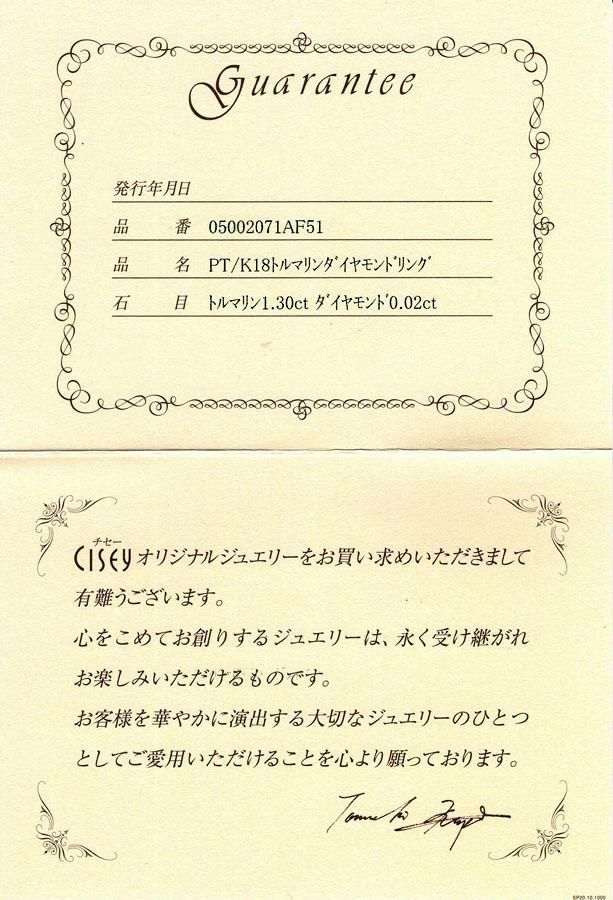 Guarantee
発行年月日
品番 05002071AF51
品名 PT/K18ﾄﾙﾏﾘﾝﾀﾞｲﾔﾓﾝﾄﾞﾘﾝｸﾞ
石目 ﾄﾙﾏﾘﾝ1.30ct ﾀﾞｲﾔﾓﾝﾄﾞ0.02ct
チセー
CISEY オリジナルジュエリーをお買い求めいただきまして
有難うございます。
心をこめてお創りするジュエリーは、永く受け継がれ
お楽しみいただけるものです。
お客様を華やかに演出する大切なジュエリーのひとつ
としてご愛用いただけることを心より願っております。
SP20.10.1000